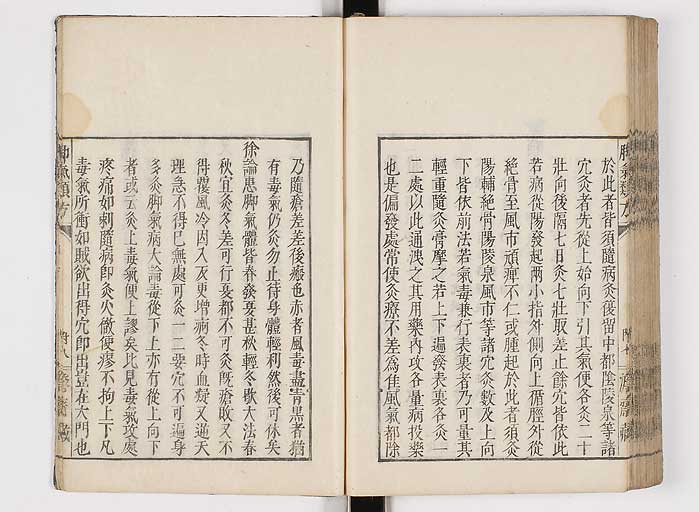 於此者皆須隨病灸復留中都陰陵泉等諸
穴灸者先從上始向下引其氣便各灸二十
壯向後隔七日灸七壯取差止餘穴皆依此
若病從陽發起兩小指外側向上循脛外從
絶骨至風市頑痺不仁或腫起於此者須灸
陽輔絶骨陽陵泉風市等諸穴灸數及上向
下皆依前法若氣毒兼行表裏者乃可量其
輕重隨灸膏摩之若上下遍發表裏各灸一
二處以此通洩之其用藥内攻各量病投藥
也是偏發處常使灸療不差爲佳風氣都除
乃隨瘡差差後瘢也赤者風毒盡青黑者猶
有毒氣仍灸勿止待身體輕利然後可休矣
徐論患脚氣體皆春發夏甚秋輕冬歇大法春
秋宜灸冬差可行夏都不可灸旣瘡敗又不
得覆風冷因入灰更增病冬時血凝又逆天
理急不得已無處可灸一二要穴不可遍身
多灸脚氣病大論毒從下上亦有從上向下
者或云灸上毒氣便上謬矣此見毒氣攻處
疼痛如刺隨病即灸火徹便瘳不拘上下凡
毒氣所衝如賊欲出得穴即出豈在大門也
脚氣類方